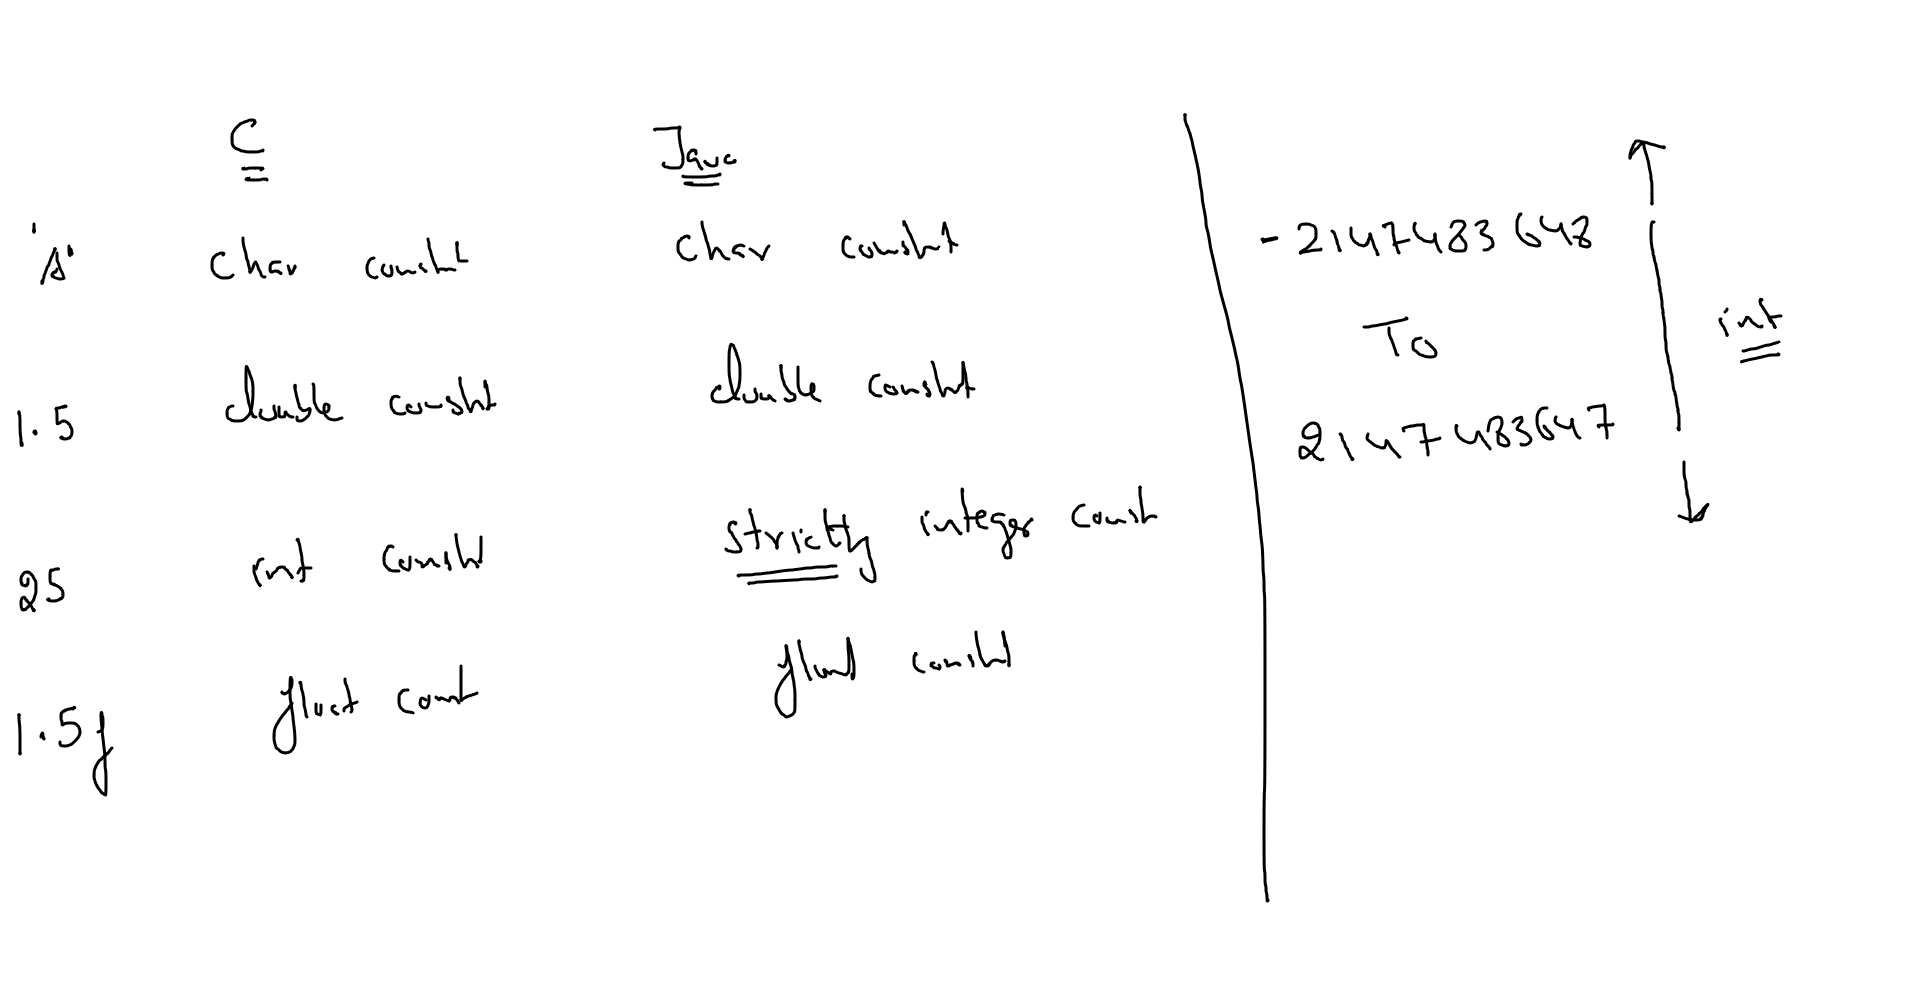 C Java
'A' char const char const
1.5 double const double const
25 int const strictly integer const
1.5f float const float const
-2147483648
To
2147483647
int